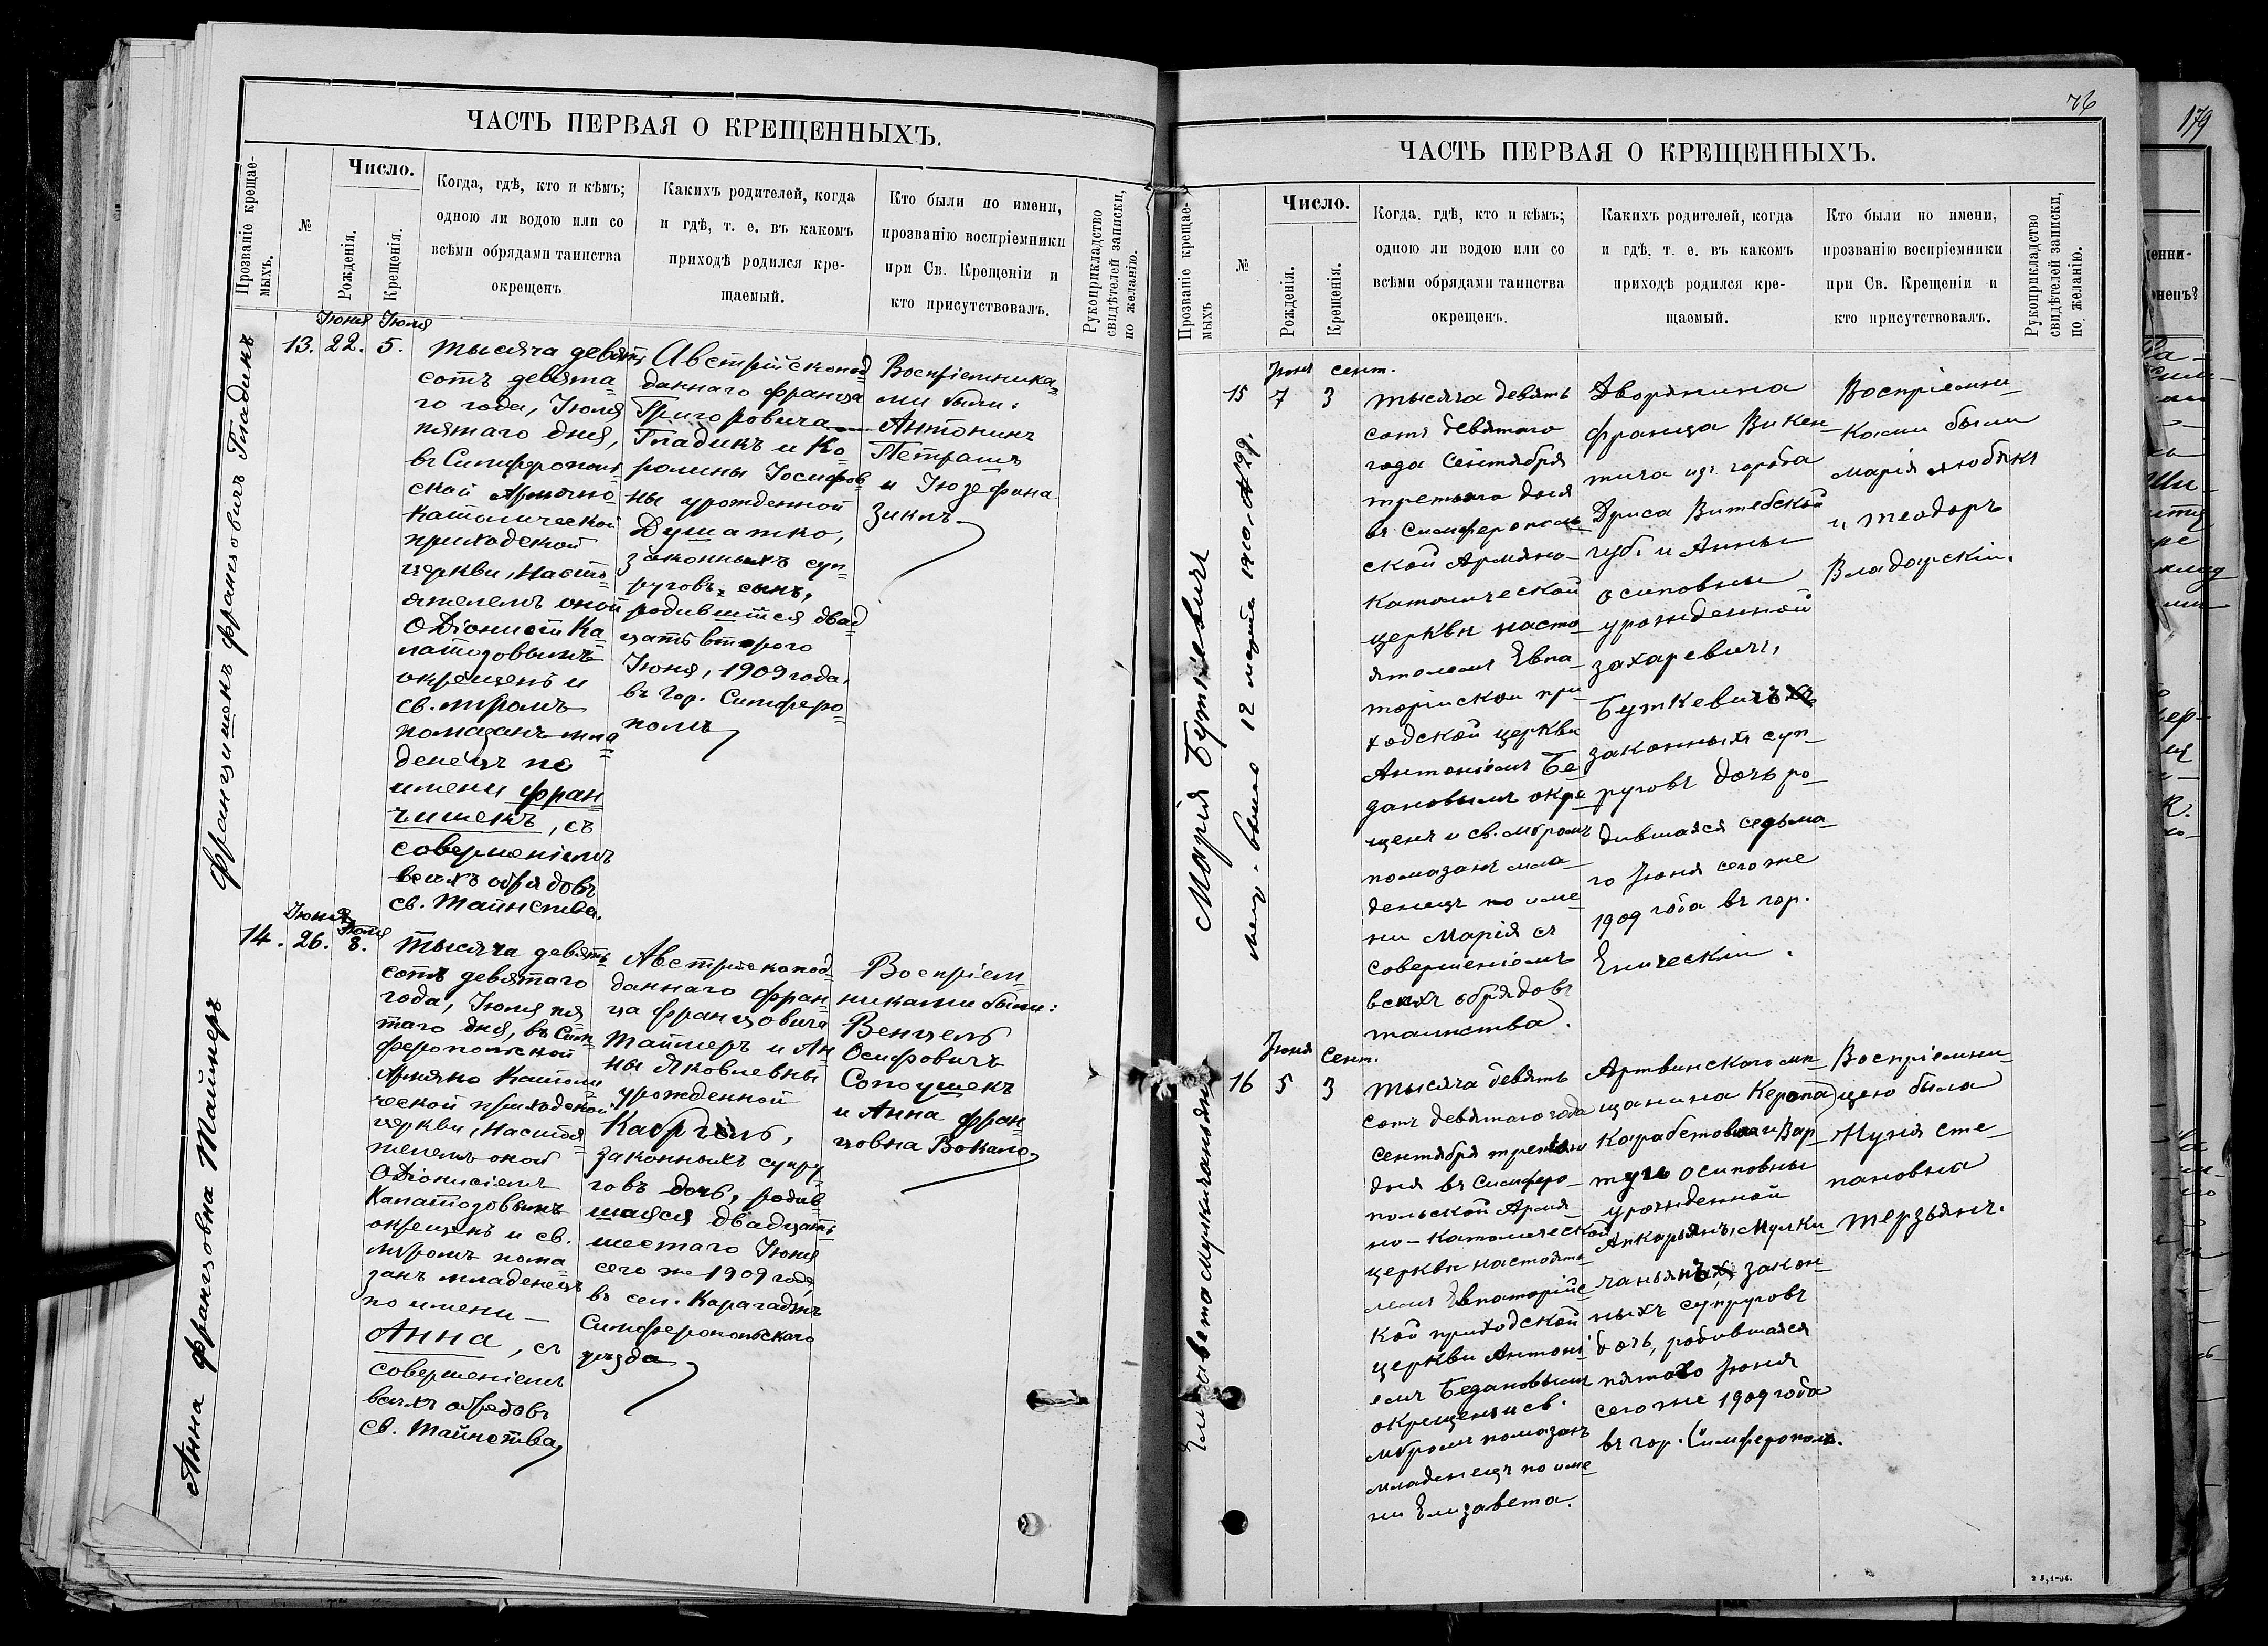 ЧАСТЬ ПЕРВАЯ О КРЕЩЕННЫХЪ.
Прозваніе крещае-
мыхъ.
№
Число.
Рожденія.
Крещенія.
Когда, гдѣ, кто и кѣмъ;
одною ли водою или со
всѣми обрядами таинства
окрещенъ
Какихъ родителей, когда
и гдѣ, т. е. въ какомъ
приходѣ родился кре-
щаемый.
Кто были по имени,
прозванію воспріемники
при Св. Крещеніи и
кто присутствовалъ.
Рукоприкладство
свидѣтелей записки,
по желанію.
Францишекъ Францовичъ Гладикъ
13.
Іюня
22.
Іюля
5.
Тысяча девять
сотъ девята
го года, Іюля
пятаго дня,
въ Симферополь
ской Армяно
католической
приходской
церкви, Насто
ятелемъ оной
О Діонисіем Ка
латозовымъ
окрещенъ и
св. мѵромъ
помазанъ мла
денецъ по
имени Фран
чишекъ, съ
совершеніемъ
всѣхъ обрядовъ
св. Таинства.
Австрійскопод
даннаго Франца
Григоровича
Гладикъ и Ка
ролины Іосифов
ны урожденной
Душатко,
законныхъ суп
руговъ сынъ,
родившійся двад
цать втораго
Іюня, 1909 года.
въ гор. Симферо
полѣ
Воспріемника
ми были:
Антонинъ
Петрашъ
и Іюзефина
Зикль
Анна Францовна Тайнеръ
14.
Іюня
26.
Іюля
8.
Тысяча девять
сотъ девятаго
года, Іюля пя
таго дня, въ Сим
феропольской
Армяно Католи
ческой приходской
церкви, Настоя
телемъ оной
О Діонисіемъ
Калатозовымъ
окрещенъ и св.
мѵромъ пома
занъ младенецъ
по имени
Анна, съ
совершеніемъ
всѣхъ обрядовъ
св. Таинства
Австрійскопод
даннаго Фран
ца Францовича
Тайнеръ и Ан
ны Яковлевны
урожденной
законныхъ супру
говъ дочь, родив
шаяся двадцать
шестаго Іюня
сего же 1909 года
въ сел. Карагаджъ
Симферопольскаго
уѣзда
Воспріем
никами были:
Венцель
Осифовичъ
Сопоушекъ
и Анна Фран
цовна Вокапо
76
ЧАСТЬ ПЕРВАЯ О КРЕЩЕННЫХЪ.
Прозваніе крещае-
мыхъ
№
Число.
Рожденія.
Крещенія.
Когда, гдѣ, кто и кѣмъ;
одною ли водою или со
всѣми обрядами таинства
окрещенъ.
Какихъ родителей, когда
и гдѣ, т. е. въ какомъ
приходѣ родился кре-
щаемый.
Кто были по имени,
прозванію воспріемники
при Св. Крещеніи и
кто присутствовалъ.
Рукоприкладство
свидѣтелей записки,
по желанію.
Марія Буткевичъ
12 1910 № 29.
15
Іюня
7
Сент.
3
Тысяча девять
сотъ девятаго
года Сентября
третьяго дня
въ Симферополь
ской Армяно-
католической
церкви насто
ятелемъ Евпа
торійской при
ходской церкви
Антоніемъ Бе
дановымъ окре
щенъ и св. мѵромъ
помазанъ мла
денецъ по име
ни Марія съ
совершеніемъ
всѣхъ обрядовъ
таинства.
Дворянина
Франца Викен
тича изъ города
Дриса Витебской
губ. и Анны
Осиповны
урожденной
Захаревичъ,
Буткевичъ
законныхъ суп
руговъ дочь ро
дившаяся седьма
го Іюня сего же
1909 года въ гор.
Еническіи.
Воспріемни
ками были
Марія Любякъ
и Теодоръ
Владарскіи.
Елизавета Мулкичаньянъ
16
Іюня
5
Сент.
3
Тысяча девять
сотъ девятаго года
Сентября третьяго
дня въ Симферо
польской Армя
но-католической
церкви настояте
лемъ Евпаторійс
кой приходской
церкви Антоні
емъ Бедановымъ
окрещенъ и св.
мѵромъ помазанъ
младенецъ по име
ни Елизавета.
Артвинскаго мѣ
щанина Керопа
Карабетовича и Вар
туи Осиповны
урожденной
Анкарьянъ, Мулки
чаньянъ, закон
ныхъ супруговъ
дочь, родившаяся
пятаго Іюня
сего же 1909 года
въ гор. Симферополѣ.
Воспріемни
цею была
Мунія Сте
пановна
Терзьянъ.
2 8, 1-06.
179